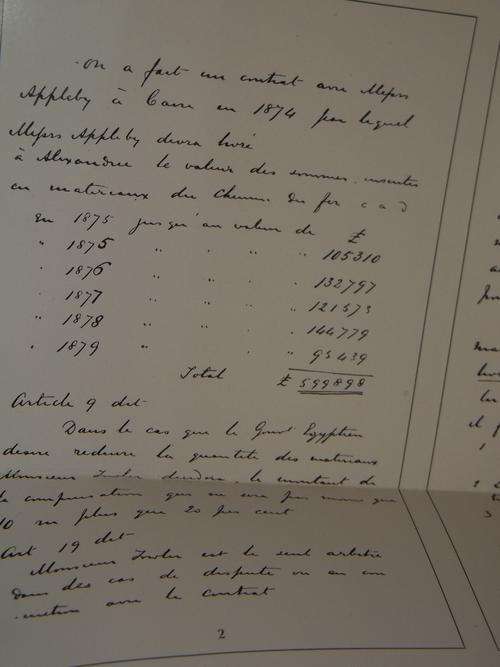 on a fait un contrat avec Messrs
Appleby à Caire en 1874 par lequel
Messrs Appleby devra livré
à Alexandrie le valeur des sommes inscrites
en materiaux du Chemin du fer c a d
en 1875 jusqu'au valeur de £
" 1875 " " " " 105310
" 1876 " " " " 132797
" 1877 " " " " 121573
" 1878 " " " 144779
" 1879 " " " 95439
Total £ 599898
Article 9 dit
Dans le cas que le Gouvt Egyptien
desire reduire la quantité des materiaux
Monsieur Fowler decidera le montant de
la compensation que ne sera pas moins que
10 ni plus que 20 per cent
Art 19 dit
Monsieur Fowler est le seul arbitre
dans des cas de dispute ou au con
nection avec le contrat
2